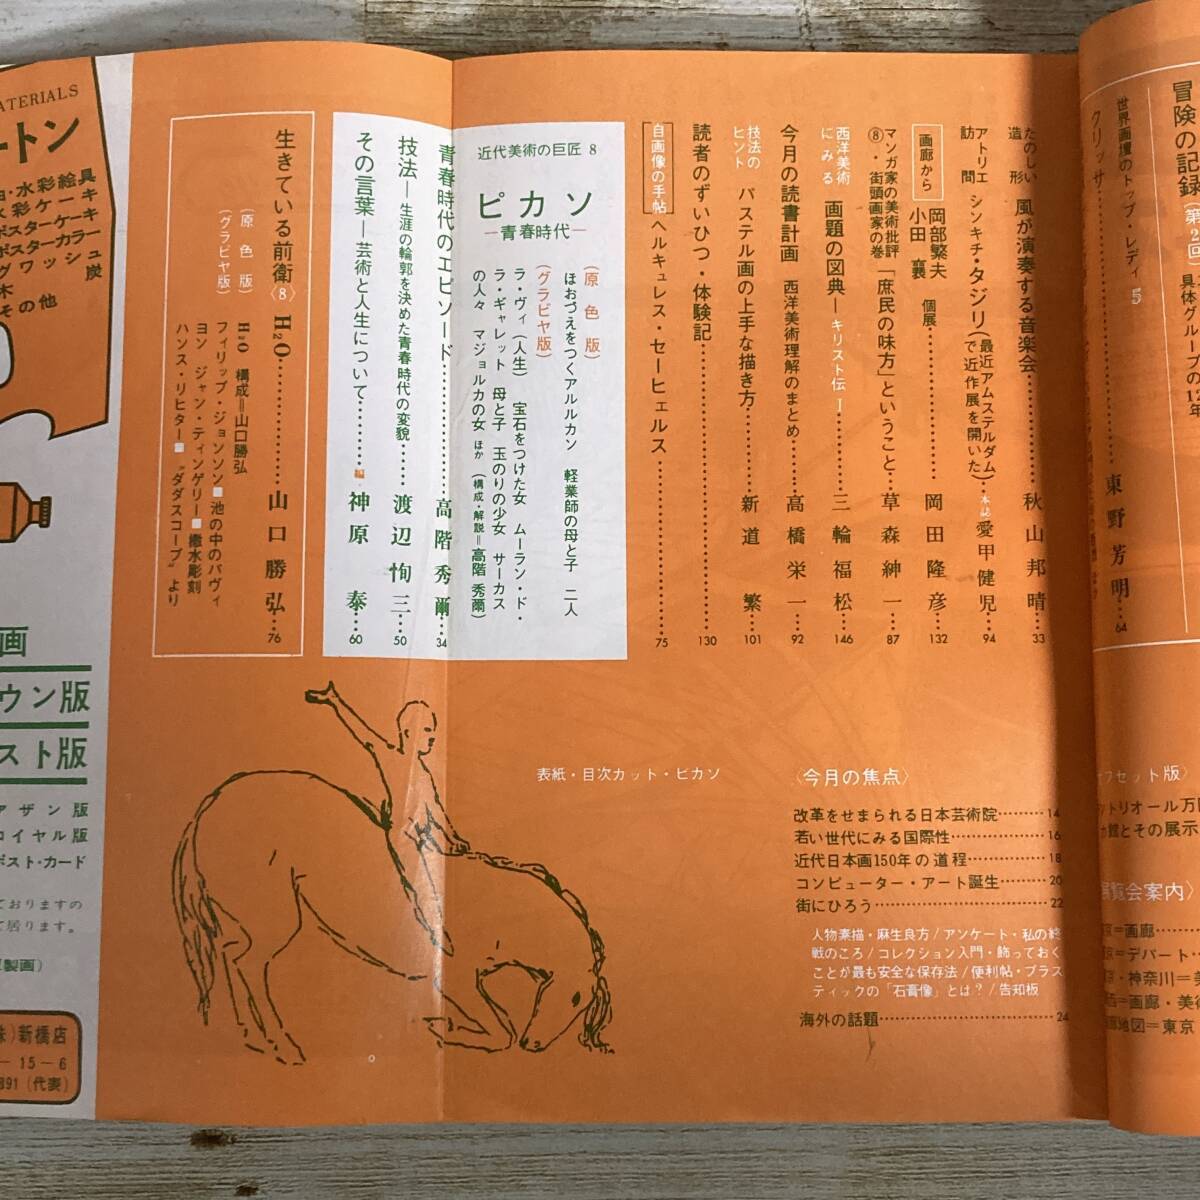 冒険の記録(第2回)
具体グループの12年
世界画壇のトップ・レディ 5
クリッサ
東野芳明…64
たのしい造形 風が演奏する音楽会………秋山邦晴…33
アトリエ訪問 シンキチ・タジリ(最近アムステルダムで近作展を開いた)・本誌 愛甲健児…94
画廊から 岡部繁夫 小田 襄 個展………岡田隆彦…132
マンガ家の美術批評⑧・街頭画家の巻 「庶民の味方」ということ……草森紳一…87
西洋美術にみる 画題の図典―キリスト伝Ⅰ………三輪福松…146
今月の読書計画 西洋美術理解のまとめ………高橋栄一…92
技法のヒント パステル画の上手な描き方………新道 繁…101
読者のずいひつ・体験記………130
自画像の手帖 ヘルキュレス・セーヒェルス………75
近代美術の巨匠 8
ピカソ
―青春時代―
(原色版)
ほおづえをつくアルルカン 軽業師の母と子 二人
(グラビヤ版)
ラ・ヴィ(人生) 宝石をつけた女 ムーラン・ド・
ラ・ギャレット 母と子 玉のりの少女 サーカス
の人々 マジョルカの女 ほか (構成・解説=高階 秀爾)
青春時代のエピソード………高階秀爾…34
技法―生涯の輪郭を決めた青春時代の変貌……渡辺恂三…50
その言葉―芸術と人生について………編 神原 泰…60
生きている前衛〈8〉 H₂O………山口勝弘…76
(原色版) H₂O 構成=山口勝弘
(グラビヤ版) フィリップ・ジョンソン■池の中のパヴィ
ヨン ジャン・ティンゲリー■撒水彫刻
ハンス・リヒター■“ダダスコープ”より
表紙・目次カット・ピカソ
〈今月の焦点〉
改革をせまられる日本芸術院………14
若い世代にみる国際性………16
近代日本画150年の道程………18
コンピューター・アート誕生………20
街にひろう………22
人物素描・麻生良方/アンケート・私の終
戦のころ/コレクション入門・飾っておく
ことが最も安全な保存法/便利帖・プラス
ティックの「石膏像」とは?/告知板
海外の話題………24
フセット版〉
ントリオール万
館とその展示
展覧会案内〉
京=画廊
京=デパート
京・神奈川=美
西=画廊・美術
廊地図=東京
ATERIALS
ートン
由・水彩絵具
水彩ケーキ
ポスターケーキ
ポスターカラー
グワッシュ
木炭
その他
画
ウン版
スト版
アザン版
ロイヤル版
ポスト・カード
ておりますの
て居ります。
製画)
株)新橋店
－15－6
891(代表)